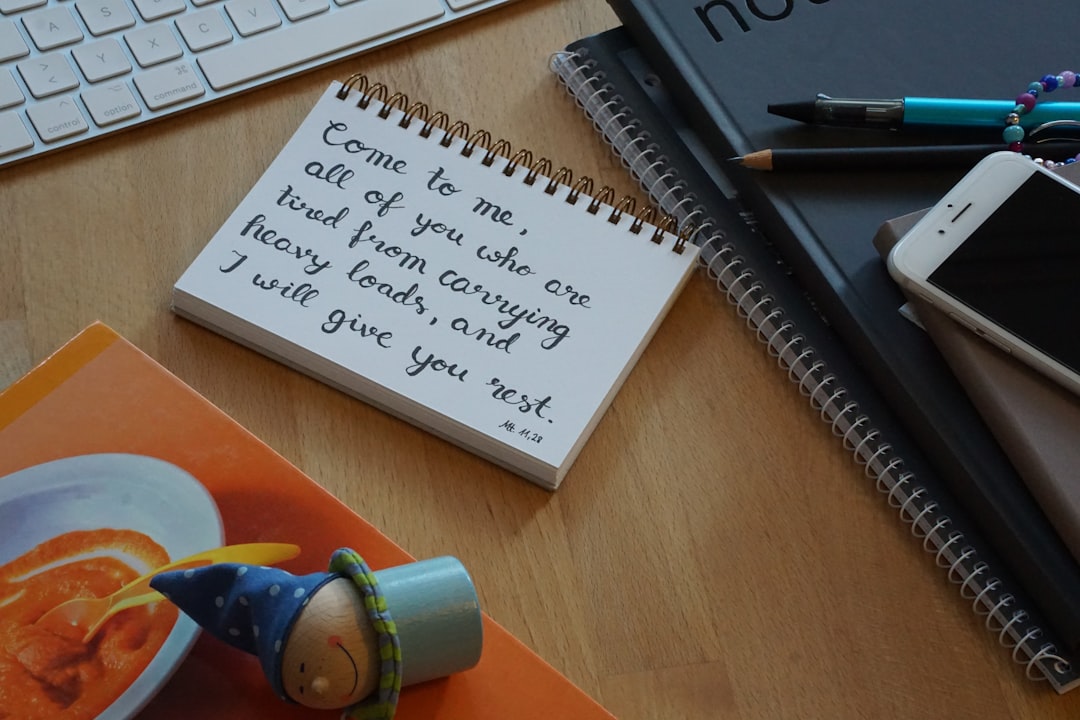 A
S
C
V
Y
X
>
<
^
control
option
⌘
command
Come to me,
all of you who are
tired from carrying
heavy loads, and
I will give you rest.
Mt 11,28